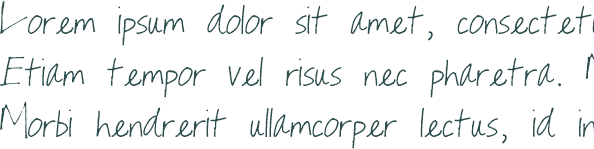 Lorem ipsum dolor sit amet, consectet
Etiam tempor vel risus nec pharetra.
Morbi hendrerit ullamcorper lectus, id in